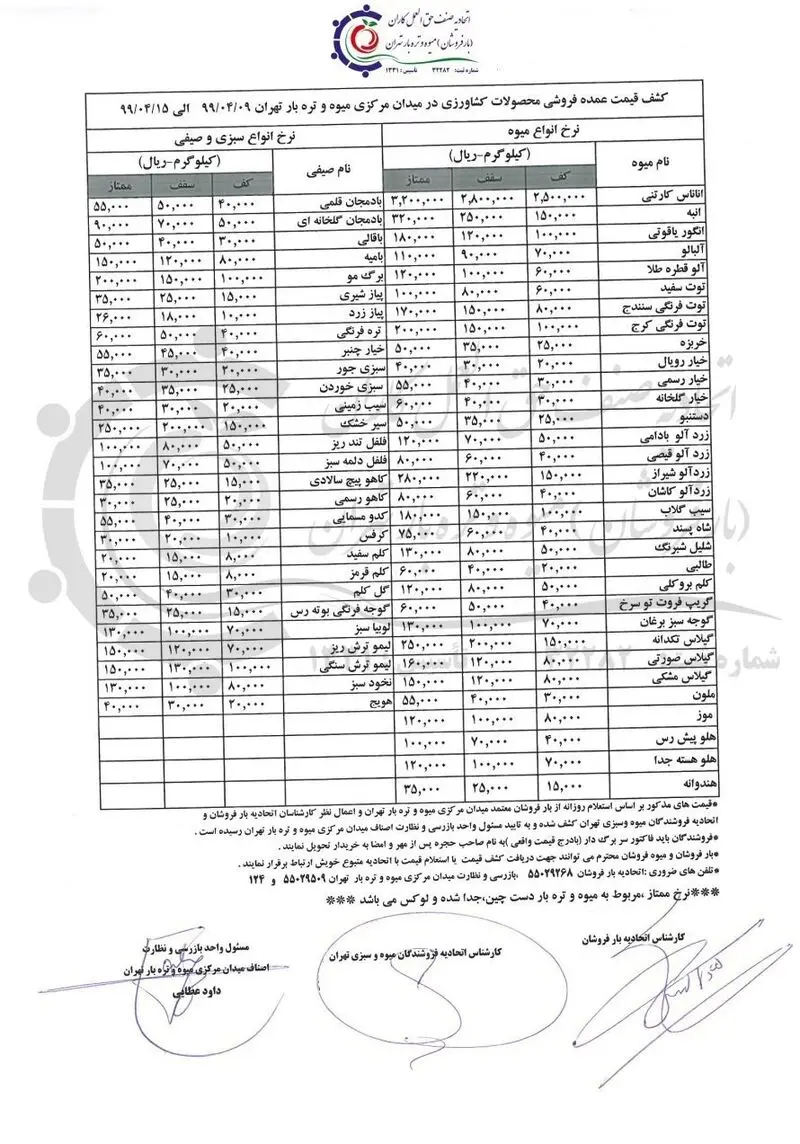 اتحادیه صنف حق العمل کاران
(بارفروشان) میوه و تره بار تهران
شماره ثبت: ۳۲۲۸۲ تاسیس: ۱۳۳۱
کشف قیمت عمده فروشی محصولات کشاورزی در میدان مرکزی میوه و تره بار تهران ۹۹/۰۴/۰۹ الی ۹۹/۰۴/۱۵
نرخ انواع میوه نرخ انواع سبزی و صیفی
نام میوه (کیلوگرم-ریال) نام صیفی (کیلوگرم-ریال)
کف سقف ممتاز کف سقف ممتاز
اناناس کارتنی ۲,۵۰۰,۰۰۰ ۲,۸۰۰,۰۰۰ ۳,۲۰۰,۰۰۰ بادمجان قلمی ۴۰,۰۰۰ ۵۰,۰۰۰ ۵۵,۰۰۰
انبه ۱۵۰,۰۰۰ ۲۵۰,۰۰۰ ۳۲۰,۰۰۰ بادمجان گلخانه ای ۵۰,۰۰۰ ۷۰,۰۰۰ ۹۰,۰۰۰
انگور یاقوتی ۱۰۰,۰۰۰ ۱۲۰,۰۰۰ ۱۸۰,۰۰۰ باقالی ۳۰,۰۰۰ ۴۰,۰۰۰ ۵۰,۰۰۰
آلبالو ۷۰,۰۰۰ ۹۰,۰۰۰ ۱۱۰,۰۰۰ بامیه ۸۰,۰۰۰ ۱۲۰,۰۰۰ ۱۵۰,۰۰۰
آلو قطره طلا ۶۰,۰۰۰ ۱۰۰,۰۰۰ ۱۲۰,۰۰۰ برگ مو ۱۰۰,۰۰۰ ۱۵۰,۰۰۰ ۲۰۰,۰۰۰
توت سفید ۶۰,۰۰۰ ۸۰,۰۰۰ ۱۰۰,۰۰۰ پیاز شیری ۱۵,۰۰۰ ۲۵,۰۰۰ ۳۵,۰۰۰
توت فرنگی سنندج ۸۰,۰۰۰ ۱۵۰,۰۰۰ ۱۷۰,۰۰۰ پیاز زرد ۱۰,۰۰۰ ۱۸,۰۰۰ ۲۶,۰۰۰
توت فرنگی کرج ۱۰۰,۰۰۰ ۱۵۰,۰۰۰ ۲۰۰,۰۰۰ تره فرنگی ۴۰,۰۰۰ ۵۰,۰۰۰ ۶۰,۰۰۰
خربزه ۲۵,۰۰۰ ۳۵,۰۰۰ ۵۰,۰۰۰ خیار چنبر ۴۰,۰۰۰ ۴۵,۰۰۰ ۵۵,۰۰۰
خیار رویال ۲۰,۰۰۰ ۳۰,۰۰۰ ۴۰,۰۰۰ سبزی جور ۲۰,۰۰۰ ۳۰,۰۰۰ ۳۵,۰۰۰
خیار رسمی ۳۰,۰۰۰ ۴۰,۰۰۰ ۵۵,۰۰۰ سبزی خوردن ۲۵,۰۰۰ ۳۵,۰۰۰ ۴۰,۰۰۰
خیار گلخانه ۳۰,۰۰۰ ۴۰,۰۰۰ ۶۰,۰۰۰ سیب زمینی ۲۰,۰۰۰ ۳۰,۰۰۰ ۴۰,۰۰۰
دستنبو ۲۵,۰۰۰ ۳۵,۰۰۰ ۵۰,۰۰۰ سیر خشک ۱۵۰,۰۰۰ ۲۰۰,۰۰۰ ۲۵۰,۰۰۰
زرد آلو بادامی ۵۰,۰۰۰ ۷۰,۰۰۰ ۱۲۰,۰۰۰ فلفل تند ریز ۵۰,۰۰۰ ۸۰,۰۰۰ ۱۰۰,۰۰۰
زرد آلو قیصی ۴۰,۰۰۰ ۶۰,۰۰۰ ۸۰,۰۰۰ فلفل دلمه سبز ۵۰,۰۰۰ ۷۰,۰۰۰ ۱۰۰,۰۰۰
زردآلو شیراز ۱۵۰,۰۰۰ ۲۲۰,۰۰۰ ۲۸۰,۰۰۰ کاهو پیچ سالادی ۱۵,۰۰۰ ۲۵,۰۰۰ ۳۵,۰۰۰
زردآلو کاشان ۴۰,۰۰۰ ۶۰,۰۰۰ ۸۰,۰۰۰ کاهو رسمی ۲۰,۰۰۰ ۲۵,۰۰۰ ۳۰,۰۰۰
سیب گلاب ۱۰۰,۰۰۰ ۱۵۰,۰۰۰ ۱۸۰,۰۰۰ کدو مسمایی ۳۰,۰۰۰ ۴۰,۰۰۰ ۵۵,۰۰۰
شاه پسند ۴۰,۰۰۰ ۶۰,۰۰۰ ۷۵,۰۰۰ کرفس ۱۰,۰۰۰ ۲۰,۰۰۰ ۳۰,۰۰۰
شلیل شبرنگ ۵۰,۰۰۰ ۸۰,۰۰۰ ۱۳۰,۰۰۰ کلم سفید ۸,۰۰۰ ۱۵,۰۰۰ ۲۰,۰۰۰
طالبی ۲۰,۰۰۰ ۴۰,۰۰۰ ۶۰,۰۰۰ کلم قرمز ۸,۰۰۰ ۱۵,۰۰۰ ۲۰,۰۰۰
کلم بروکلی ۵۰,۰۰۰ ۸۰,۰۰۰ ۱۲۰,۰۰۰ گل کلم ۳۰,۰۰۰ ۴۰,۰۰۰ ۵۰,۰۰۰
گریپ فروت تو سرخ ۴۰,۰۰۰ ۵۰,۰۰۰ ۶۰,۰۰۰ گوجه فرنگی بوته رس ۱۵,۰۰۰ ۲۵,۰۰۰ ۳۵,۰۰۰
گوجه سبز برغان ۷۰,۰۰۰ ۱۰۰,۰۰۰ ۱۳۰,۰۰۰ لوبیا سبز ۷۰,۰۰۰ ۱۰۰,۰۰۰ ۱۳۰,۰۰۰
گیلاس تکدانه ۱۵۰,۰۰۰ ۲۰۰,۰۰۰ ۲۵۰,۰۰۰ لیمو ترش ریز ۷۰,۰۰۰ ۱۲۰,۰۰۰ ۱۵۰,۰۰۰
گیلاس صورتی ۸۰,۰۰۰ ۱۲۰,۰۰۰ ۱۶۰,۰۰۰ لیمو ترش سنگی ۱۰۰,۰۰۰ ۱۳۰,۰۰۰ ۱۵۰,۰۰۰
گیلاس مشکی ۸۰,۰۰۰ ۱۲۰,۰۰۰ ۱۵۰,۰۰۰ نخود سبز ۸۰,۰۰۰ ۱۰۰,۰۰۰ ۱۳۰,۰۰۰
ملون ۳۰,۰۰۰ ۴۰,۰۰۰ ۵۵,۰۰۰ هویج ۲۰,۰۰۰ ۳۰,۰۰۰ ۴۰,۰۰۰
موز ۸۰,۰۰۰ ۱۰۰,۰۰۰ ۱۲۰,۰۰۰
هلو پیش رس ۴۰,۰۰۰ ۷۰,۰۰۰ ۱۰۰,۰۰۰
هلو هسته جدا ۷۰,۰۰۰ ۱۰۰,۰۰۰ ۱۲۰,۰۰۰
هندوانه ۱۵,۰۰۰ ۲۵,۰۰۰ ۳۵,۰۰۰
*قیمت های مذکور بر اساس استعلام روزانه از بار فروشان معتمد میدان مرکزی میوه و تره بار تهران و اعمال نظر کارشناسان اتحادیه بار فروشان و
اتحادیه فروشندگان میوه وسبزی تهران کشف شده و به تایید مسئول واحد بازرسی و نظارت اصناف میدان مرکزی میوه و تره بار تهران رسیده است .
*فروشندگان باید فاکتور سر برگ دار (بادرج قیمت واقعی)به نام صاحب حجره پس از مهر و امضا به خریدار تحویل نمایند .
*بار فروشان و میوه فروشان محترم می توانند جهت دریافت کشف قیمت یا استعلام قیمت با اتحادیه متبوع خویش ارتباط برقرار نمایند .
*تلفن های ضروری :اتحادیه بار فروشان ۵۵۰۲۹۲۶۸ ،بازرسی و نظارت میدان مرکزی میوه و تره بار تهران ۵۵۰۲۹۵۰۹ و ۱۲۴
***نرخ ممتاز ،مربوط به میوه و تره بار دست چین،جدا شده و لوکس می باشد ***
کارشناس اتحادیه بار فروشان
کارشناس اتحادیه فروشندگان میوه و سبزی تهران
مسئول واحد بازرسی و نظارت
اصناف میدان مرکزی میوه و تره بار تهران
داود عطایی